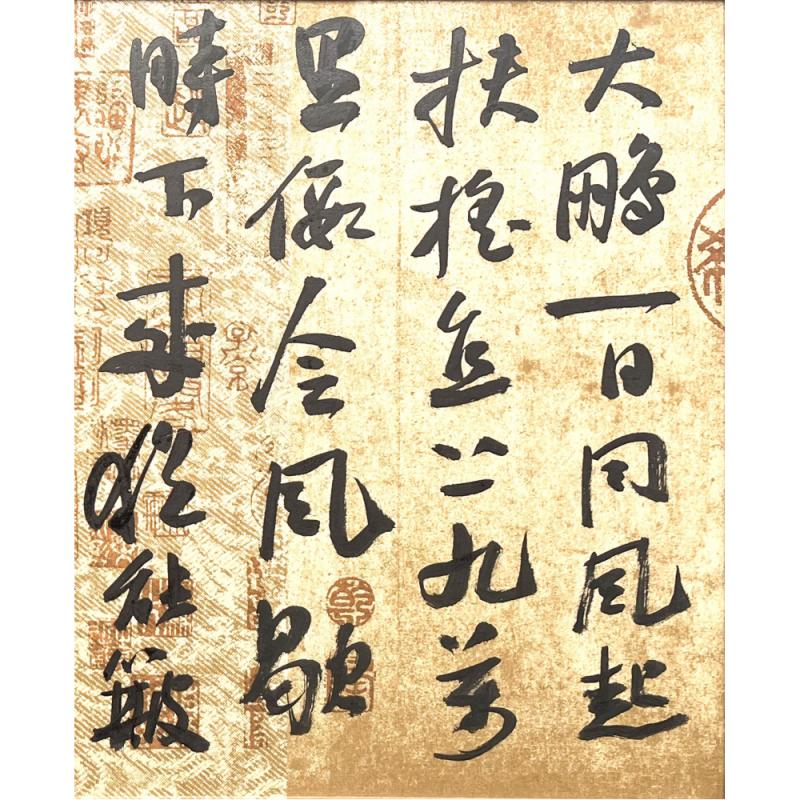 大鵬一日同風起
扶搖直上九萬
里假令風歇
時下來猶能簸